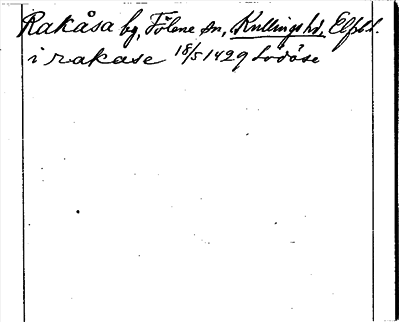 Rakåsa by, Fölene sn, Kullings hd, Elfsb. l.
i rakase 18/5 1429 Lödöse